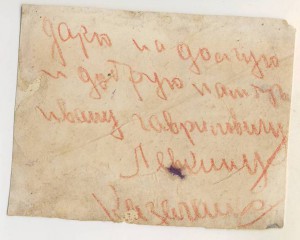 дарю на долгую
и добрую память
ивану гавриловичу
Левкину